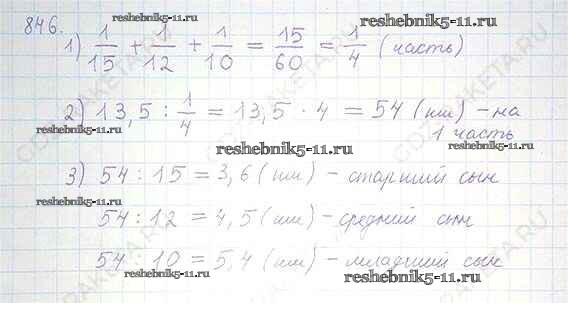 846.
reshebnik5-11.ru
1) 1/15 + 1/12 + 1/10 = 15/60 = 1/4 (часть)
2) 13,5 : 1/4 = 13,5 · 4 = 54 (км) - на
reshebnik5-11.ru
1 часть
reshebnik5-11.ru
reshebnik5-11.ru
3) 54 : 15 = 3,6 (км) - старший сын
reshebnik5-11.ru
54 : 12 = 4,5 (км) - средний сын
54 : 10 = 5,4 (км) - младший сын
reshebnik5-11.ru
reshebnik5-11.ru
GDZRAKETA.RU